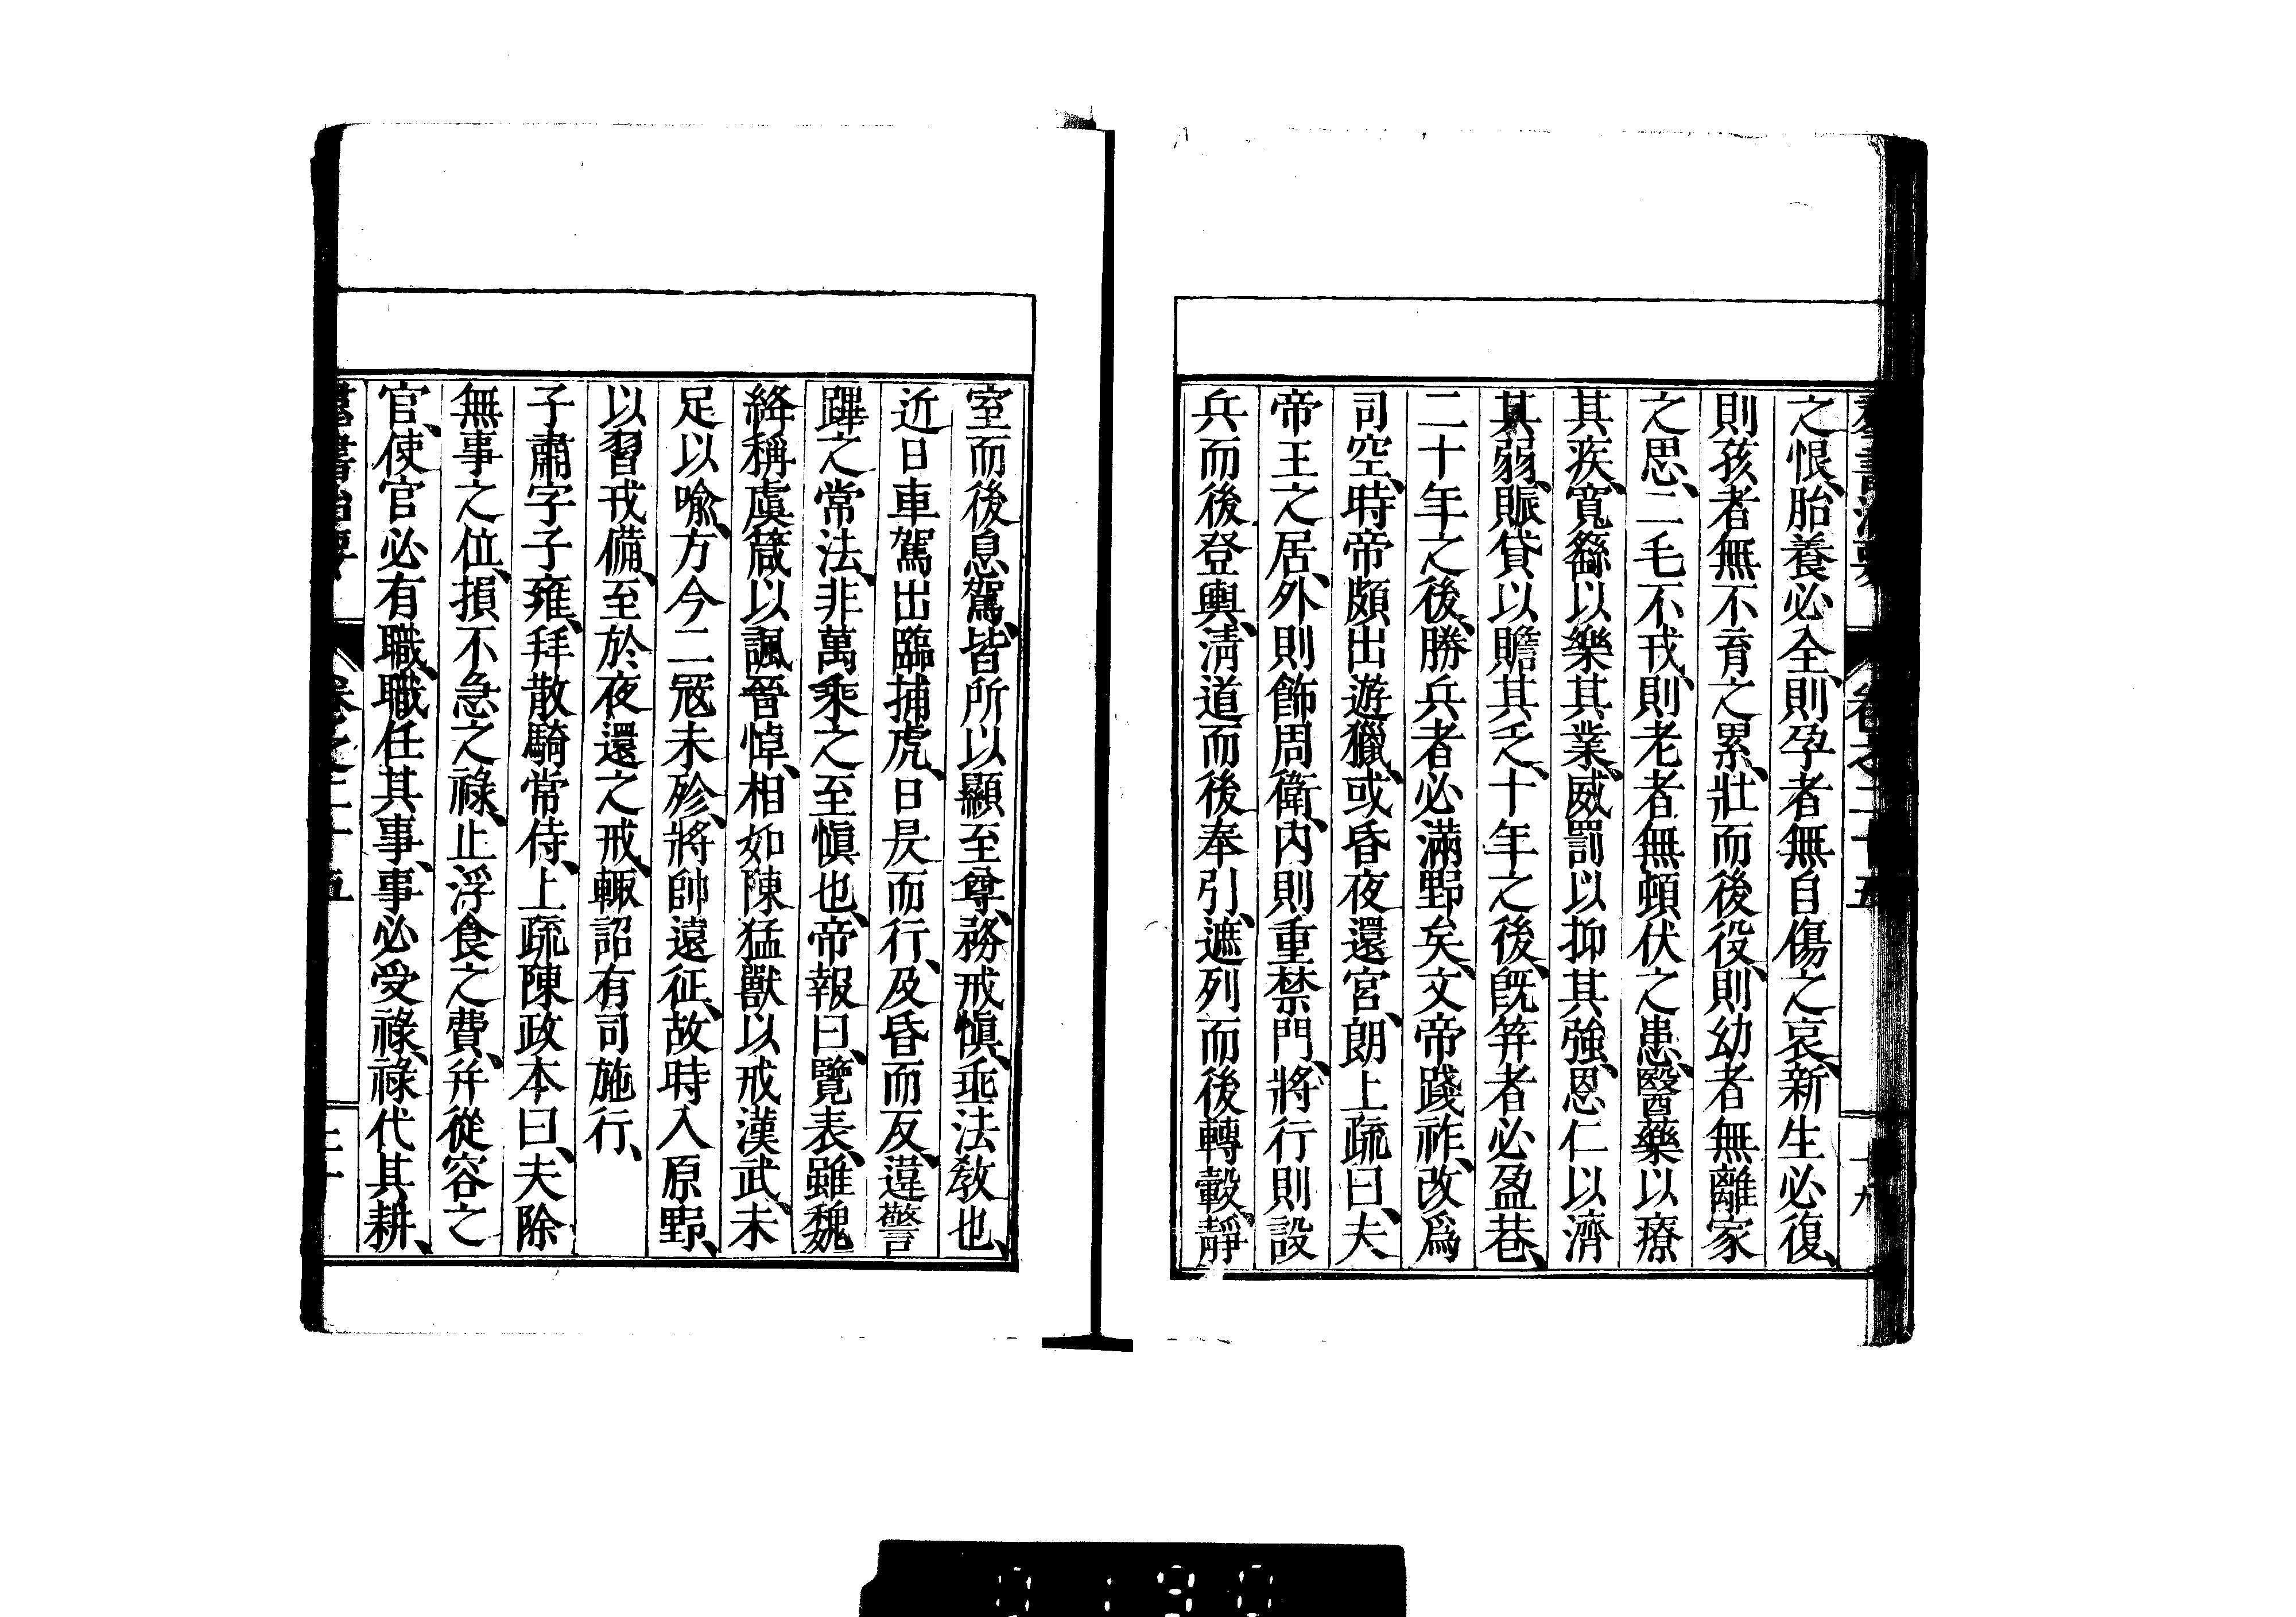 羣書治要 卷之二十五 十九
之恨、胎養必全、則孕者無自傷之哀、新生必復、
則孩者無不育之累、壯而後役、則幼者無離家
之思、二毛不戎、則老者無頓伏之患、醫藥以療
其疾、寬繇以樂其業、威罰以抑其強、恩仁以濟
其弱、賑貸以贍其乏、十年之後、旣笄者必盈巷、
二十年之後、勝兵者必滿野矣、文帝踐祚、改爲
司空、時帝頗出遊獵、或昏夜還宮、朗上疏曰、夫
帝王之居、外則飾周衛、內則重禁門、將行則設
兵而後登輿、淸道而後奉引、遮列而後轉轂、靜
室而後息駕、皆所以顯至尊、務戒愼、垂法敎也、
近日車駕出臨捕虎、日昃而行、及昏而反、違警
蹕之常法、非萬乘之至愼也、帝報曰、覽表、雖魏
絳稱虞箴以諷晉悼、相如陳猛獸以戒漢武、未
足以喩、方今二寇未殄、將帥遠征、故時入原野、
以習戎備、至於夜還之戒、輙詔有司施行、
子肅字子雍、拜散騎常侍、上疏陳政本曰、夫除
無事之位、損不急之祿、止浮食之費、幷從容之
官、使官必有職、職任其事、事必受祿、祿代其耕、
羣書治要 卷之二十五 二十